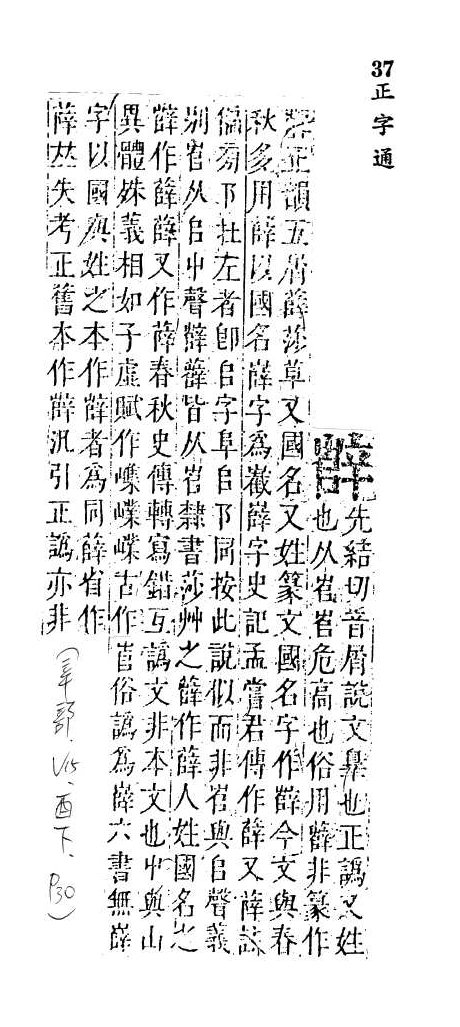 37 正字通
辥
先結切音屑說文辠也正譌又姓
也从𡴎𡴎危高也俗用嶭非篆作
正韻五屑薛莎草又國名又姓篆文國名字作嶭今文與春
秋多用薛以國名嶭字為巀嶭字史記孟嘗君傳作薛又薛註
偏旁阝在左者卽𠂤字阜𠂤阝同按此說似而非𡴎與𠂤聲義
別𡴎从𠂤屮聲皆从𡴎隸書莎艸之薛作薛人姓國名之
薛作薛薛又作薛春秋史傳轉寫錯互譌文非本文也屮與山
異體殊義相如子虛賦作嶫嶪嶫古作𡴎俗譌為嶭六書無嶭
字以國與姓之本作薛者為同薛省作
薛𠀤失考正舊本作薛汎引正譌亦非
(辛部、V15、酉下、P30)